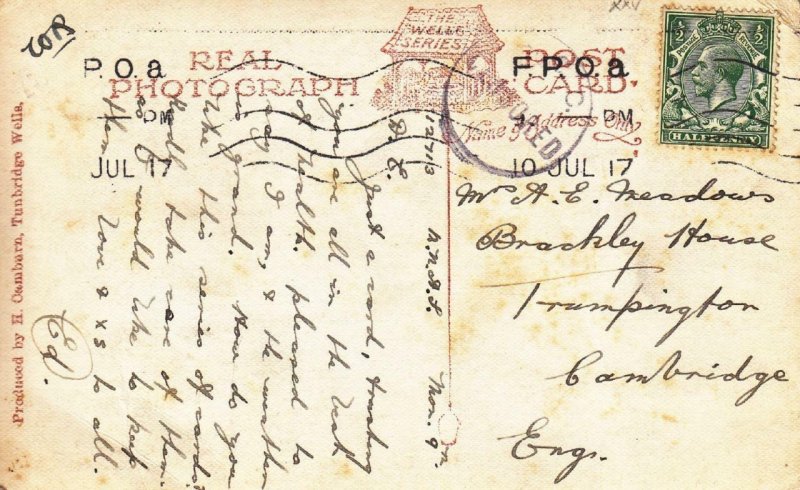 REAL
PHOTOGRAPH
THE
WELLS
SERIES
POST
CARD.
Name & Address Only
P.O.a
1 - PM
JUL 17
F.P.O.a
1 - PM
10 JUL 17
HALFPENNY
Produced by H. Camburn, Tunbridge Wells.
Mon. 9
Just a card, trusting
you are all in the best
of health. pleased to
say I am, & the weather
is grand. How do you
like this series of cards?
Kindly take care of them
as I would like to keep
them. Love & xs to all.
Ed.
Mrs A. E. Meadows
Brackley House
Trumpington
Cambridge
Eng.